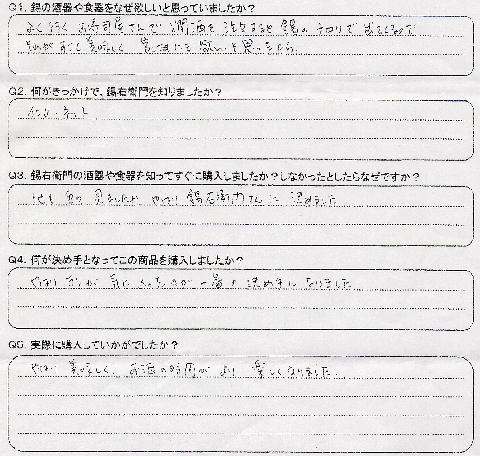 Q1. 錫の酒器や食器をなぜ欲しいと思っていましたか?
よく行く お寿司屋さんで 燗酒を 注文すると 錫の チロリで 出てくるので
それがすごく美味しく 家でも 思ったから
Q2. 何がきっかけで、錫右衛門を知りましたか?
インターネット
Q3. 錫右衛門の酒器や食器を知ってすぐに購入しましたか?しなかったとしたらなぜですか?
他も 見ましたが やはり 錫右衛門さんに 決めました
Q4. 何が決め手となってこの商品を購入しましたか?
やはり 気に入ったのが 一番の 決め手に なりました
Q5. 実際に購入していかがでしたか?
やはり 美味しく、お酒の時間が より 楽しくなりました。